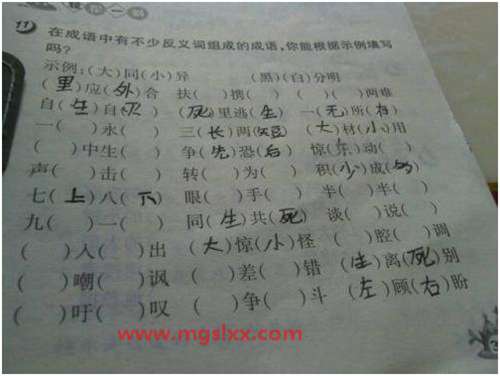 11
在成语中有不少反义词组成的成语,你能根据示例填写
吗?
示例:(大)同(小)异 (黑)(白)分明
(里)应(外)合 扶( )携( ) ( )( )两难
自(生)自(灭) (死)里逃(生) 一(无)所(有)
一( )永( ) 三(长)两(短) (大)材(小)用
( )中生( ) 争(先)恐(后) 惊( )动( )
声( )击( ) 转( )为( ) 积(小)成( )
七(上)八(下) 眼( )手( ) 半( )半( )
九( )一( ) 同(生)共(死) 谈( )说( )
( )入( )出 (大)惊(小)怪 ( )腔( )调
( )嘲( )讽 ( )差( )错 (生)离(死)别
( )吁( )叹 ( )争( )斗 (左)顾(右)盼
www.mgslxx.com